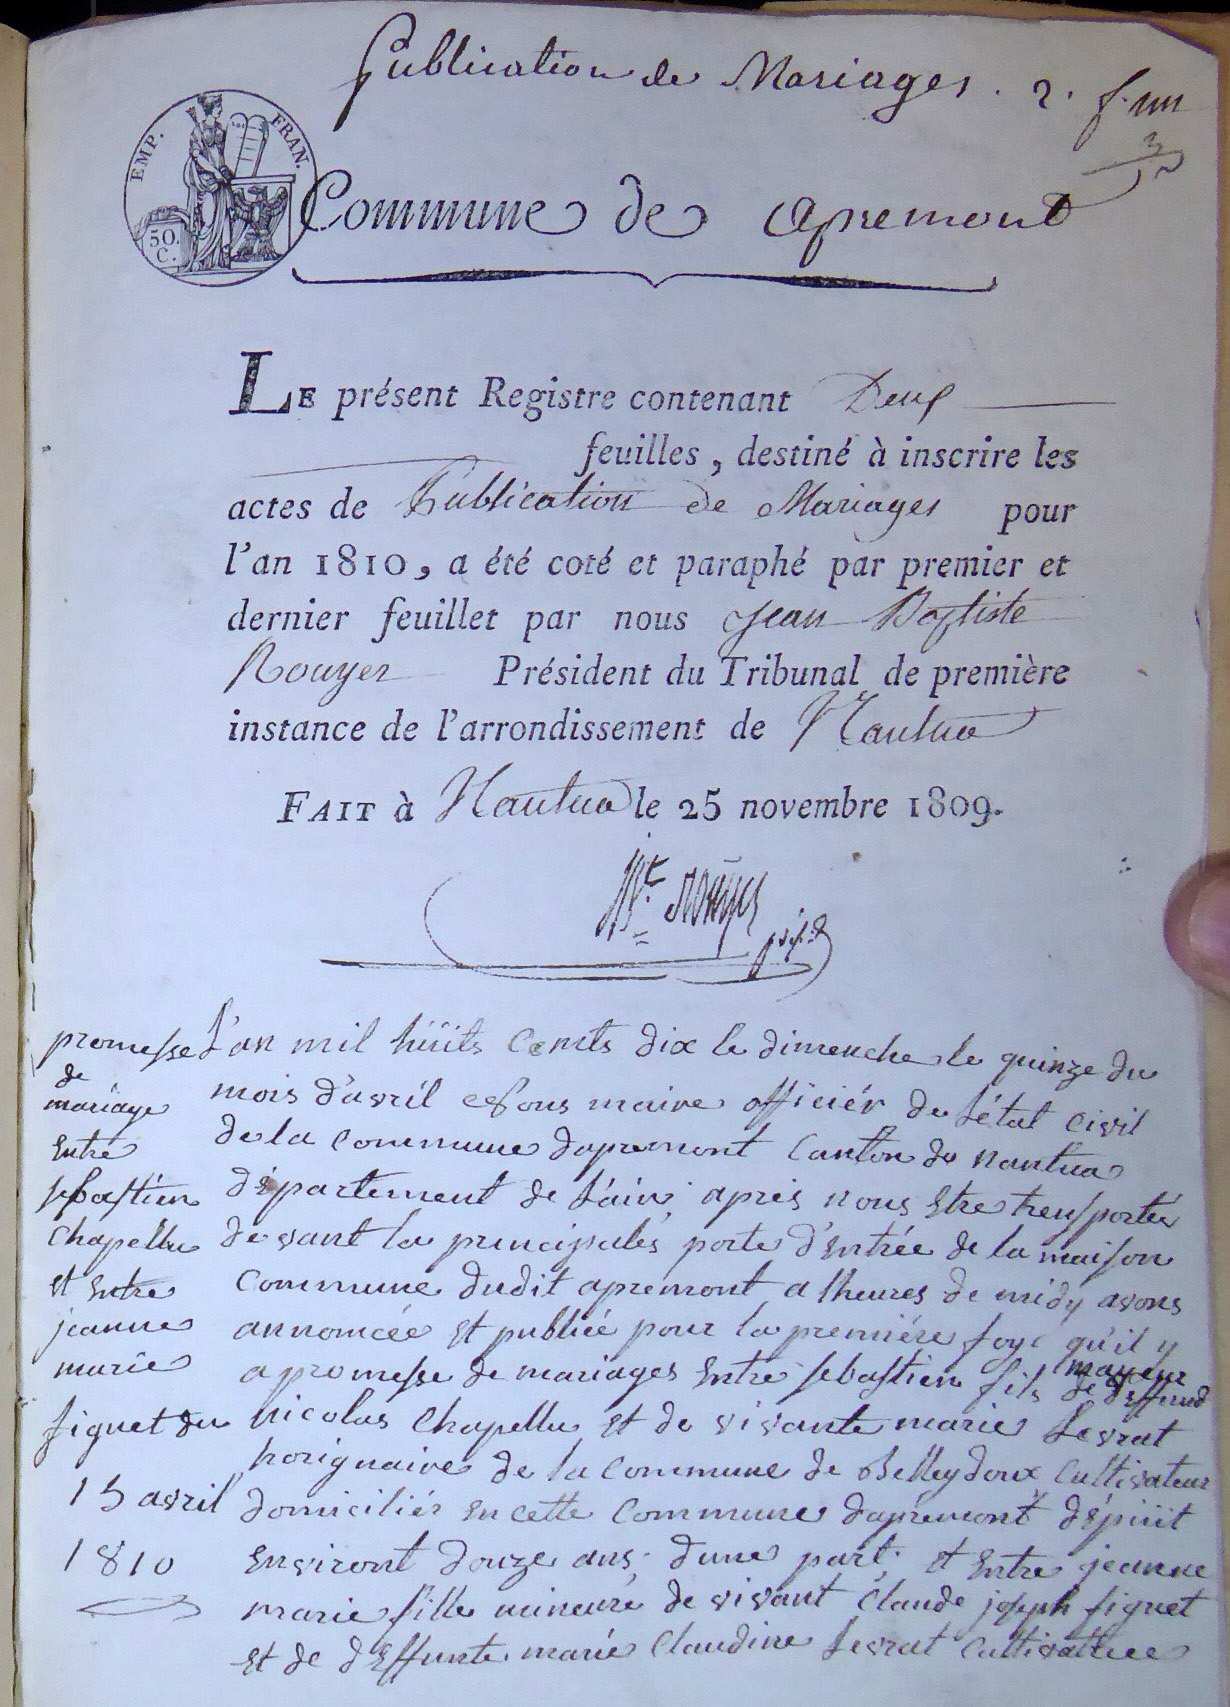 Publication de Mariages. 2. f. un
EMP. FRAN.
50. C.
Commune de apremont
LE présent Registre contenant Deux
feuilles, destiné à inscrire les
actes de Publication de Mariages pour
l'an 1810, a été coté et paraphé par premier et
dernier feuillet par nous Jean Baptiste
Rouyer Président du Tribunal de première
instance de l'arrondissement de Nantua
FAIT à Nantua le 25 novembre 1809.
Bte. Rouyer
présidt
promesse
de
mariage
Entre
sebastien
Chapellu
et Entre
jeanne
marie
figuet du
15 avril
1810
L'an mil hüits cents dix le dimenche le quinze du
mois d'avril nous maire officiér de l'état civil
de la commune dapremont Canton de nantua
département de l'ain, aprés nous Etre trensportér
devant la principales porte d'Entrée de la maison
Commune dudit apremont a lheures de midy avons
annoncée Et publiée pour la premiére foye qu'il y
a promesse de mariages Entre sebastien fils mageur de deffund
nicolas Chapellu Et de vivante marie Levrat
horignaire de la commune de Belleydoux cultivateur
domiciliér en cette commune dapremont dépuit
Environt douze ans, dune part, et Entre jeanne
marie fille mineure de vivant Claude joseph figuet
Et de dEffunte marie Claudine Levrat cultivatrice